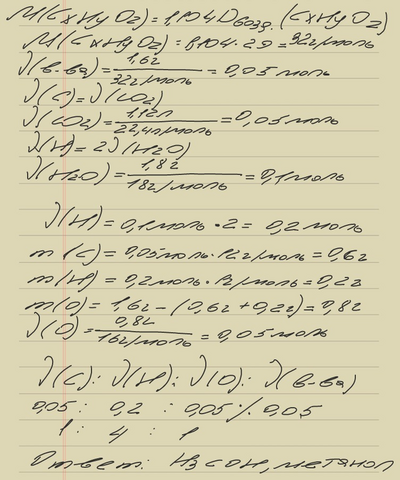 M(CxHyOz) = 1,104 Dвозд. (CxHyOz)
M(CxHyOz) = 1,104 · 29 = 32г/моль
ν(в-ва) = 1,6г / 32г/моль = 0,05 моль
ν(C) = ν(CO2)
ν(CO2) = 1,12л / 22,4л/моль = 0,05моль
ν(H) = 2ν(H2O)
ν(H2O) = 1,8г / 18г/моль = 0,1моль
ν(H) = 0,1моль · 2 = 0,2 моль
m(C) = 0,05моль · 12г/моль = 0,6г
m(H) = 0,2моль · 1г/моль = 0,2г
m(O) = 1,6г - (0,6г + 0,2г) = 0,8г
ν(O) = 0,8г / 16г/моль = 0,05моль
ν(C) : ν(H) : ν(O) : ν(в-ва)
0,05 : 0,2 : 0,05 /. 0,05
1 : 4 : 1
Ответ: H3COH, метанол